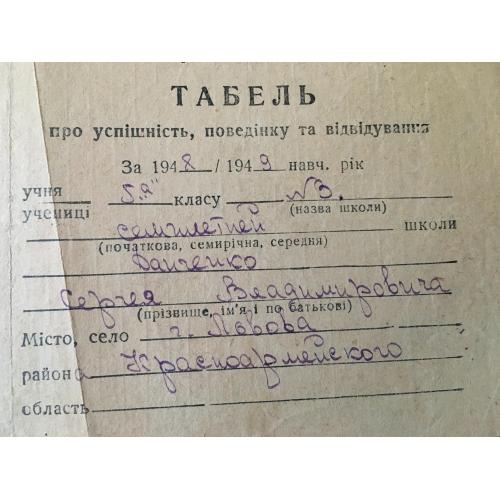 ТАБЕЛЬ
про успішність, поведінку та відвідування
За 1948/1949 навч. рік
учня 5 "а" класу №3.
учениці (назва школи)
семилетней школи
(початкова, семирічна, середня)
Данченко
Сергея Владимировича
(прізвище, ім'я і по батькові)
Місто, село г. Львова
района Красноармейского
область